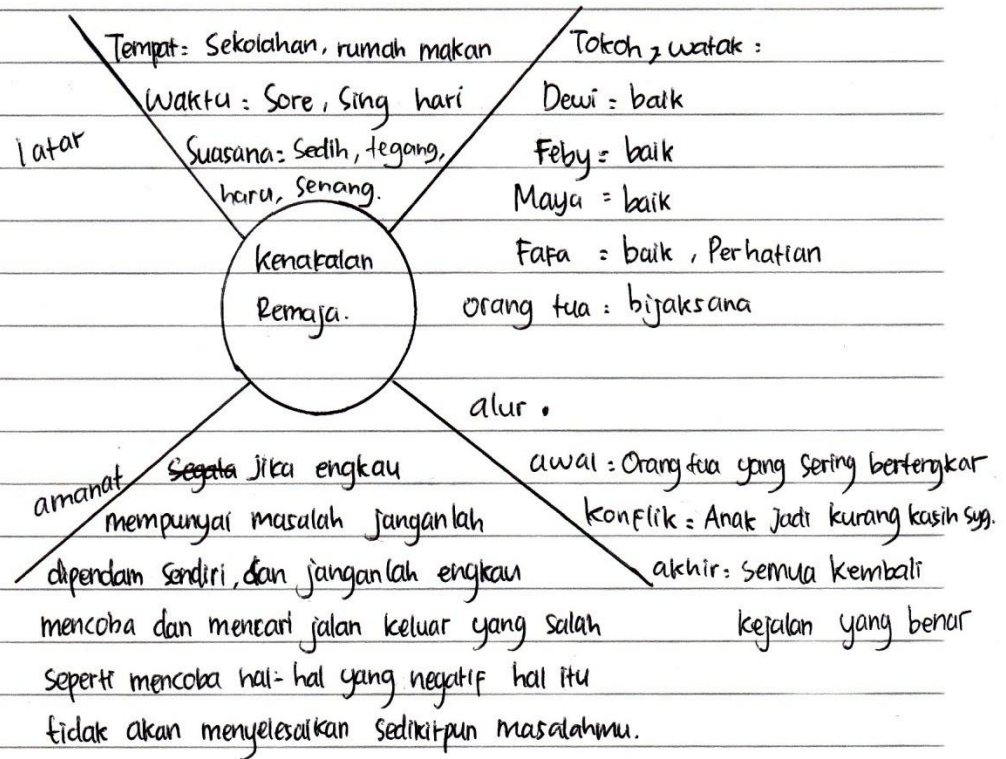 latar
Tempat: Sekolahan, rumah makan
Waktu : Sore, Sing hari
Suasana: Sedih, tegang,
haru, Senang.
Tokoh, watak :
Dewi : baik
Feby : baik
Maya : baik
Fafa : baik, Perhatian
orang tua : bijaksana
Kenakalan
Remaja.
alur .
awal : Orang tua yang Sering bertengkar
konflik : Anak Jadi kurang kasih syg.
akhir : Semua kembali
kejalan yang benar
amanat
Segala jika engkau
mempunyai masalah janganlah
dipendam sendiri, dan janganlah engkau
mencoba dan mencari jalan keluar yang salah
seperti mencoba hal-hal yang negatif hal itu
tidak akan menyelesaikan sedikitpun masalahmu.